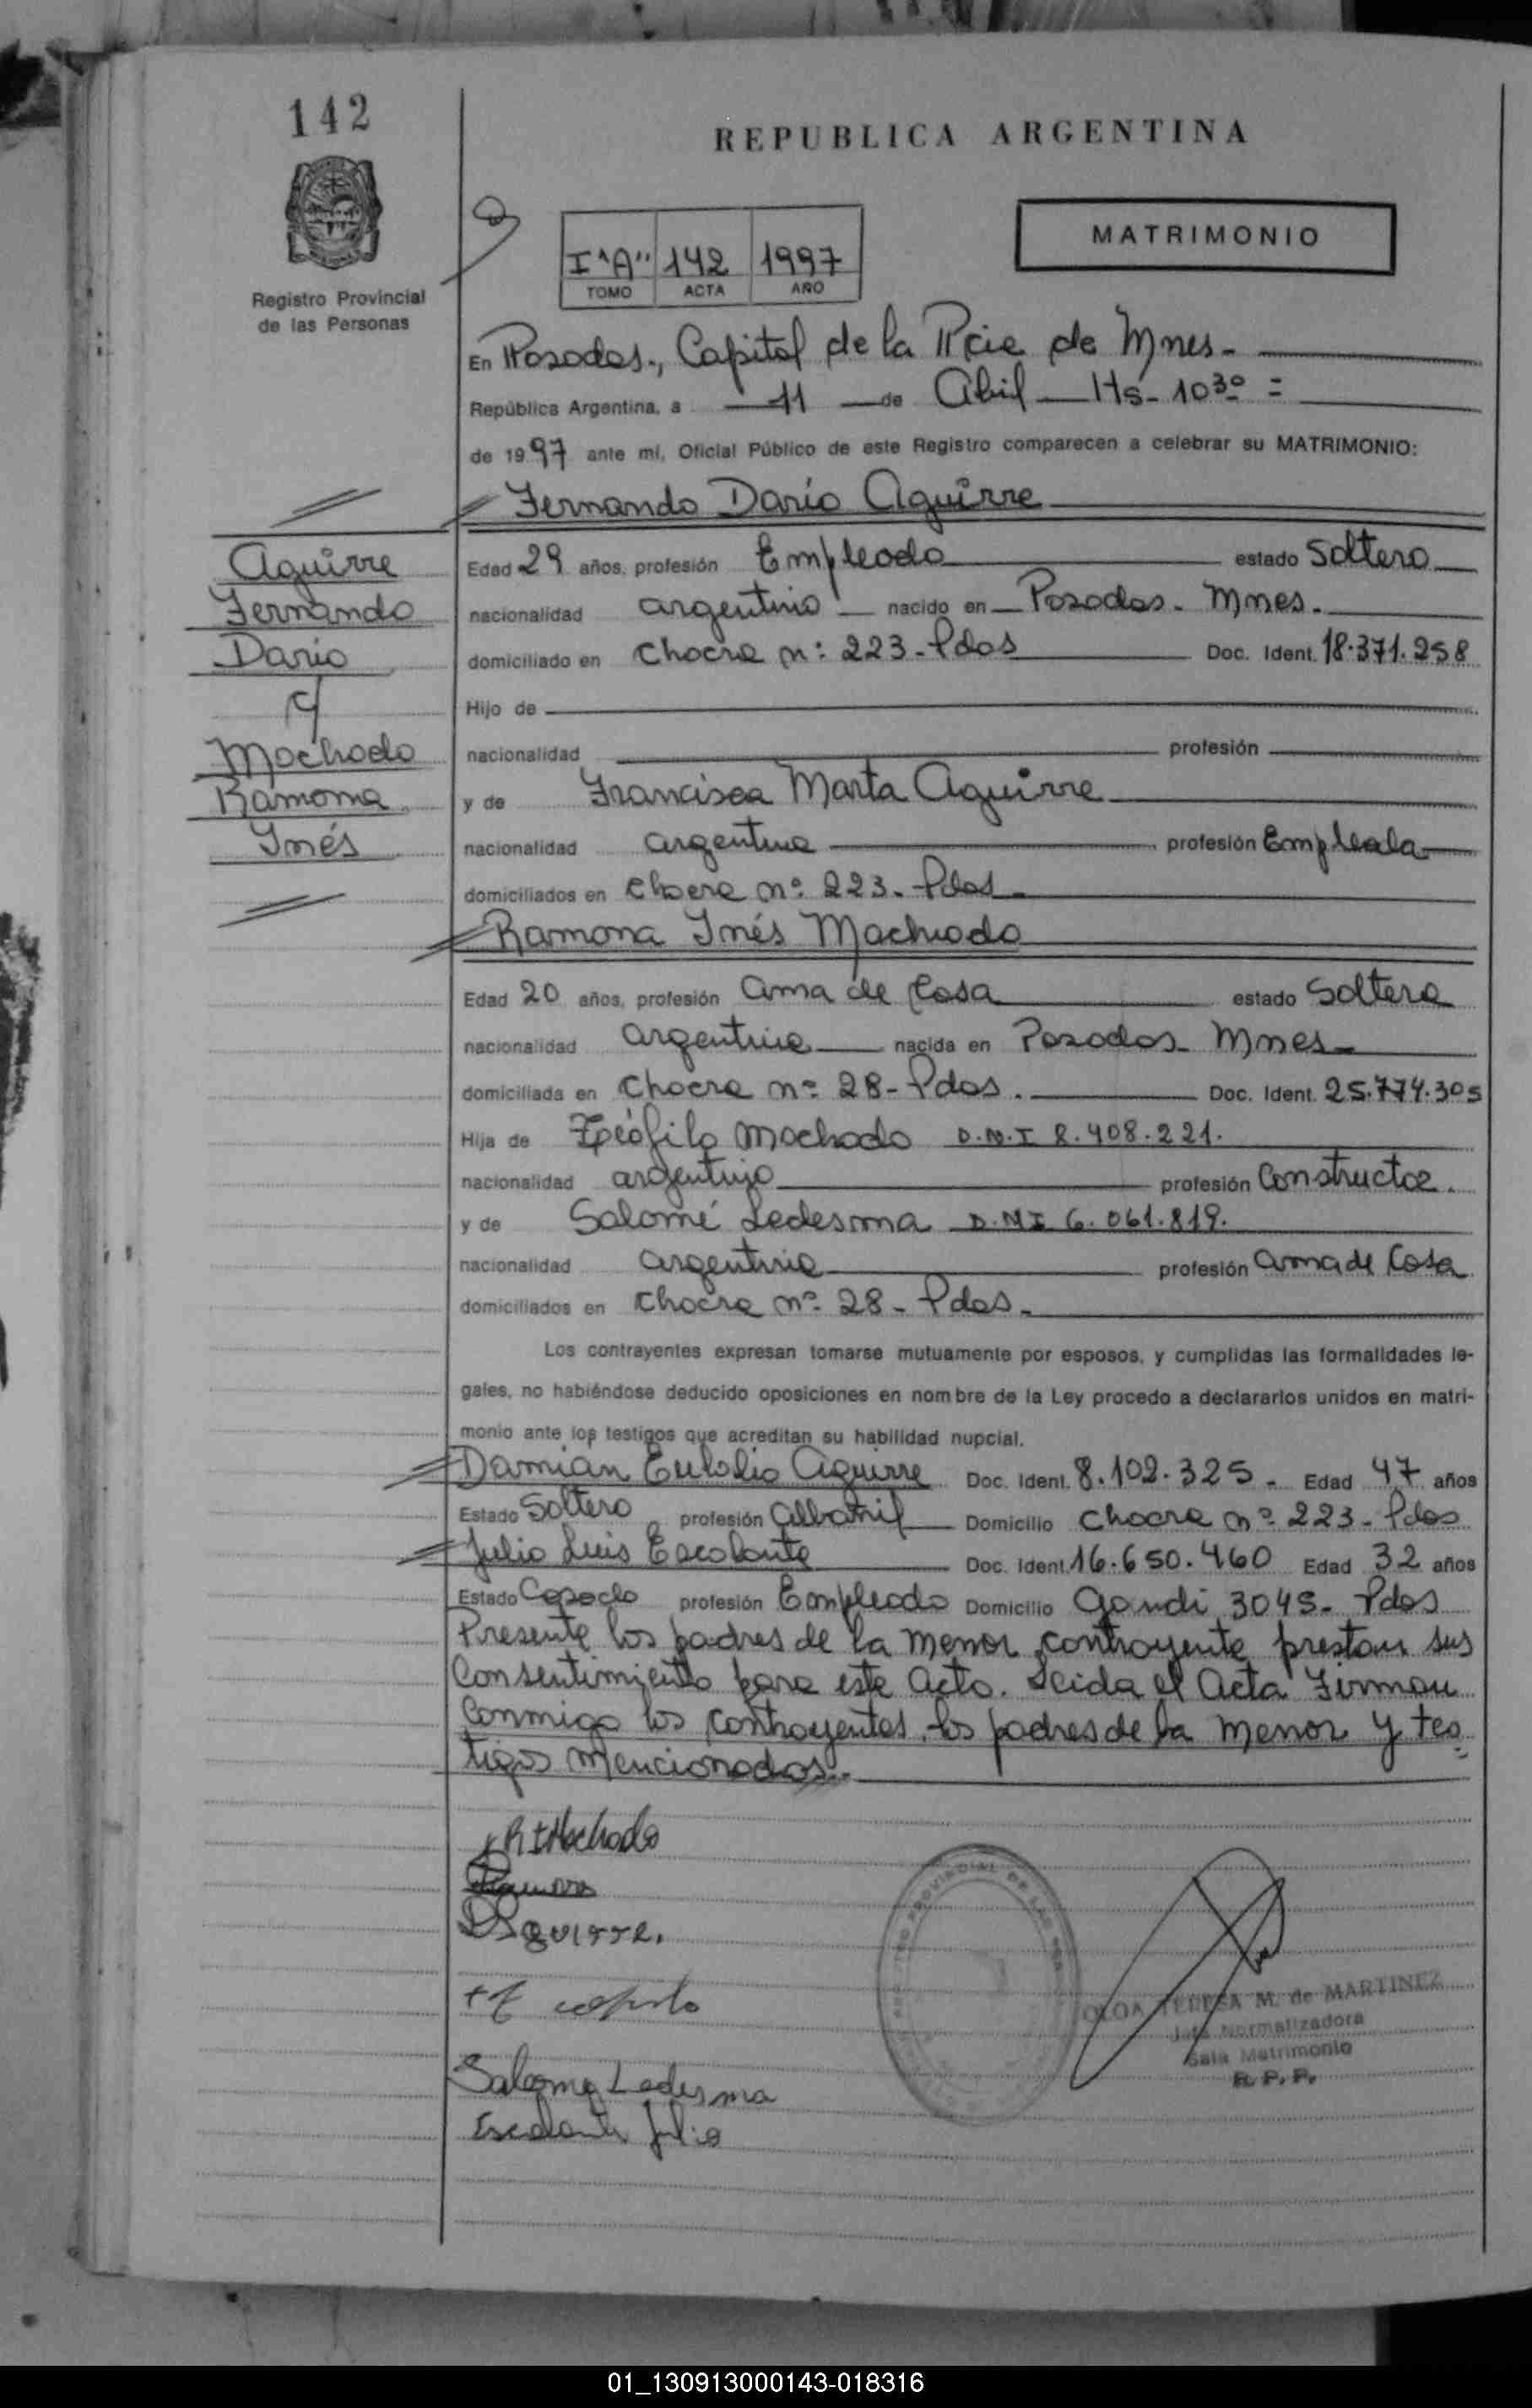 142
REPUBLICA ARGENTINA
MATRIMONIO
I "A" 142 1997
TOMO ACTA AÑO
Registro Provincial
de las Personas
En Posadas., Capital de la Pcia de Mnes.
República Argentina, a 11 de Abril Hs- 10³⁰ =
de 1997 ante mí, Oficial Público de este Registro comparecen a celebrar su MATRIMONIO:
Fernando Dario Aguirre
Aguirre
Fernando
Dario
y
Machado
Ramona
Inés
Edad 29 años, profesión Empleado estado Soltero
nacionalidad argentino nacido en Posadas. Mnes.
domiciliado en Chacra n: 223-Pdas Doc. Ident. 18.371.258
Hijo de
nacionalidad profesión
y de Francisca Marta Aguirre
nacionalidad argentina profesión Empleada
domiciliados en Chacra nº 223- Pdas-
Ramona Inés Machado
Edad 20 años, profesión Ama de Casa estado Soltera
nacionalidad argentina nacida en Posadas- Mnes-
domiciliada en Chacra nº 28-Pdas. Doc. Ident. 25.774.305
Hija de Teófilo Machado D.N.I 8.408.221.
nacionalidad argentino profesión Constructor.
y de Salomé Ledesma D.N.I 6.061.819.
nacionalidad argentina profesión Ama de Casa
domiciliados en Chacra nº 28- Pdas-
Los contrayentes expresan tomarse mutuamente por esposos, y cumplidas las formalidades le-
gales, no habiéndose deducido oposiciones en nombre de la Ley procedo a declararlos unidos en matri-
monio ante los testigos que acreditan su habilidad nupcial.
Damián Eulolio Aguirre Doc. Ident. 8.102.325- Edad 47 años
Estado Soltero profesión Albañil Domicilio Chacra nº 223- Pdas
Julio Luis Escalante Doc. Ident. 16.650.460 Edad 32 años
Estado Casado profesión Empleado Domicilio Gandi 3045- Pdas
Presente los padres de la menor contrayente prestan sus
Consentimiento para este Acto. Leida el Acta Firman
Conmigo los contrayentes, los padres de la menor y tes
tigos mencionados.-
R I Machado
Aguirre.
Salome Ledesma
Escalante Julio
OLGA TERESA M. de MARTINEZ
Jefa Normalizadora
Sala Matrimonio
R. P. P.
01_130913000143-018316